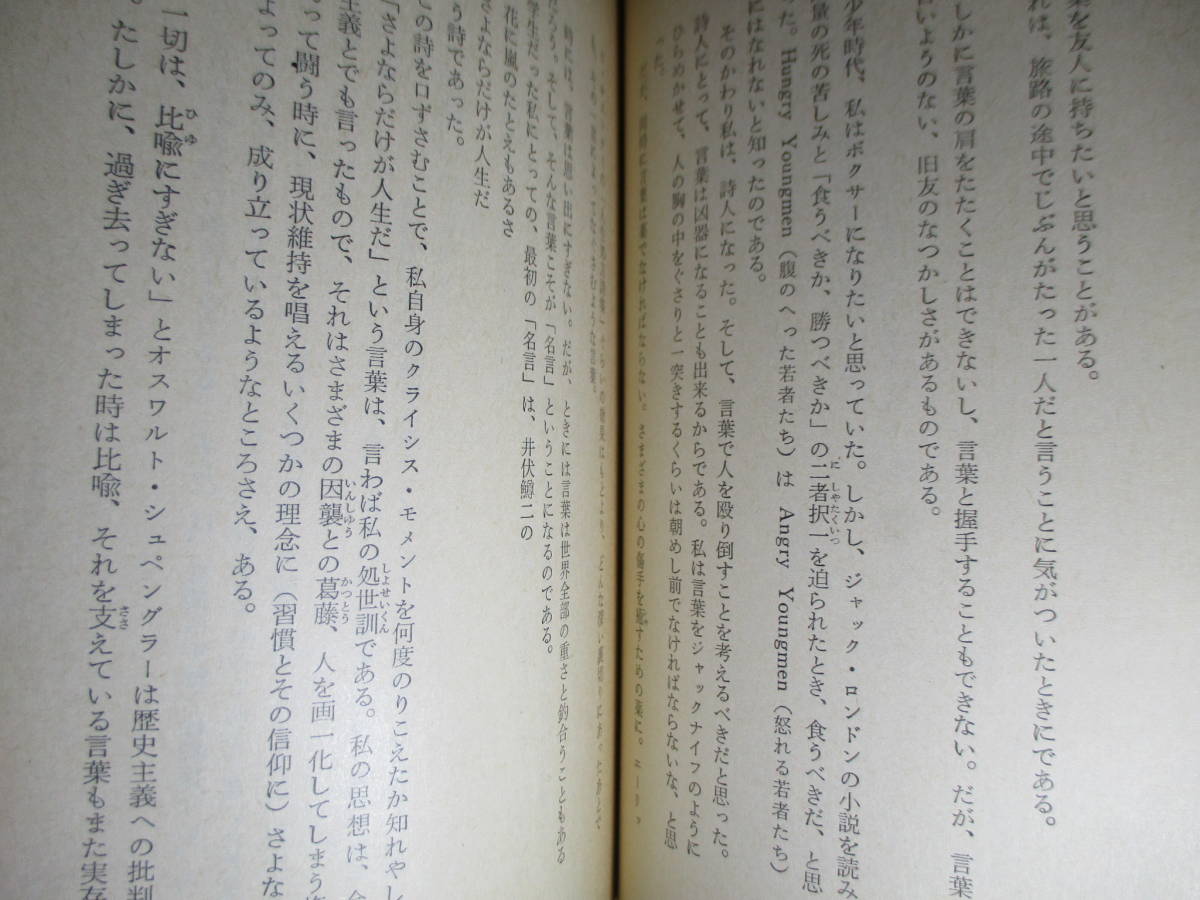 葉を友人に持ちたいと思うことがある。
れは、旅路の途中でじぶんがたった一人だと言うことに気がついたときにである。
しかに言葉の肩をたたくことはできないし、言葉と握手することもできない。だが、言葉
言いようのない、旧友のなつかしさがあるものである。
少年時代、私はボクサーになりたいと思っていた。しかし、ジャック・ロンドンの小説を読み
量の死の苦しみと「食うべきか、勝つべきか」の二者択一を迫られたとき、食うべきだ、と思
た。Hungry Youngmen（腹のへった若者たち）は Angry Youngmen（怒れる若者たち）
にはなれないと知ったのである。
そのかわり私は、詩人になった。そして、言葉で人を殴り倒すことを考えるべきだと思った。
詩人にとって、言葉は凶器になることも出来るからである。私は言葉をジャックナイフのように
ひらめかせて、人の胸の中をぐさりと一突きするくらいは朝めし前でなければならないな、と思
った。
だが、同時に言葉は薬でなければならない。さまざまの心の傷手を癒すための薬に。エーリッ
どんな深い裏切りにあ
によってなぐさむような言葉。
時には、言葉は思い出にすぎない。だが、ときには言葉は世界全部の重さと釣合うこともある
だろう。そして、そんな言葉こそが「名言」ということになるのである。
学生だった私にとっての、最初の「名言」は、井伏鱒二の
花に風のたとえもあるさ
さよならだけが人生だ
う詩であった。
この詩を口ずさむことで、私自身のクライシス・モメントを何度のりこえたか知れやし
「さよならだけが人生だ」という言葉は、言わば私の処世訓である。私の思想は、
主義とでも言ったもので、それはさまざまの因襲との葛藤、人を画一化してしまう
って闘う時に、現状維持を唱えるいくつかの理念に（習慣とその信仰に）さよな
よってのみ、成り立っているようなところさえ、ある。
一切は、比喩にすぎない」とオスワルト・シュペングラーは歴史主義への批判
。たしかに、過ぎ去ってしまった時は比喩、それを支えている言葉もまた実存